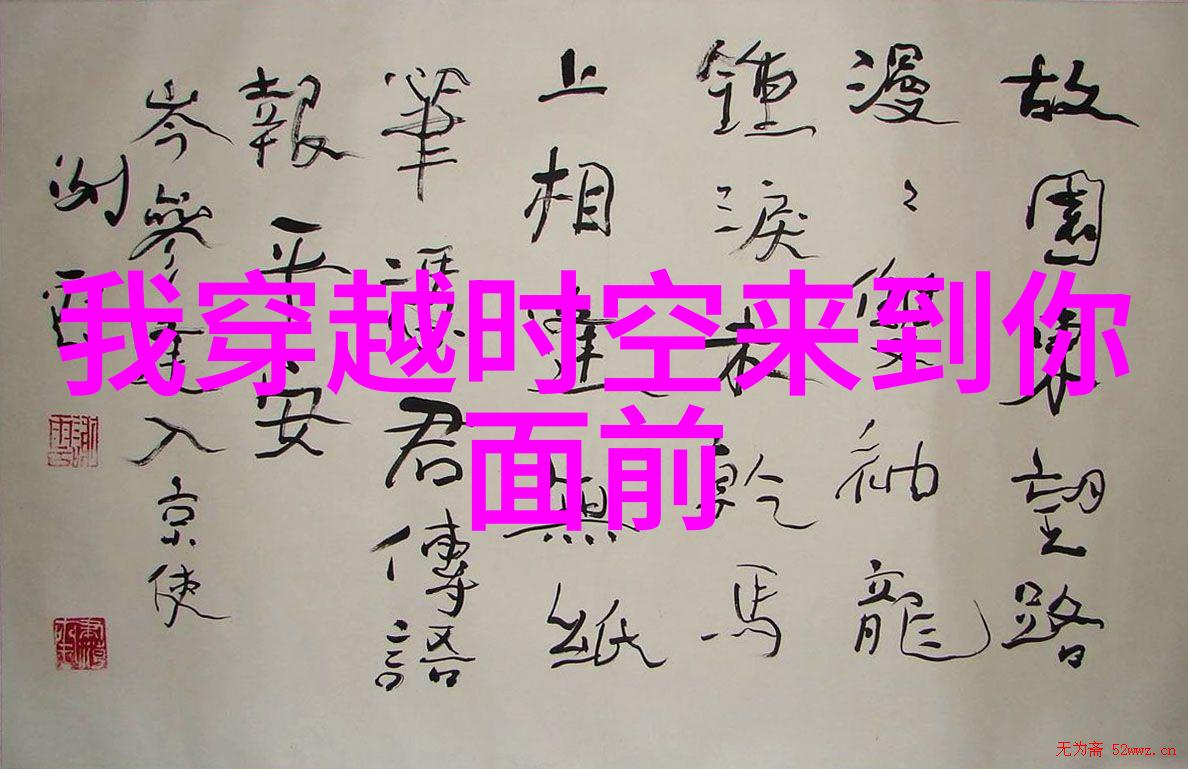 故園東望路
漫漫雙袖龍
鍾淚不乾馬
上相逢無紙
筆憑君傳語
報平安
岑參逢入京使
我穿越时空来到你
面前
无为斋 52wwz.cn